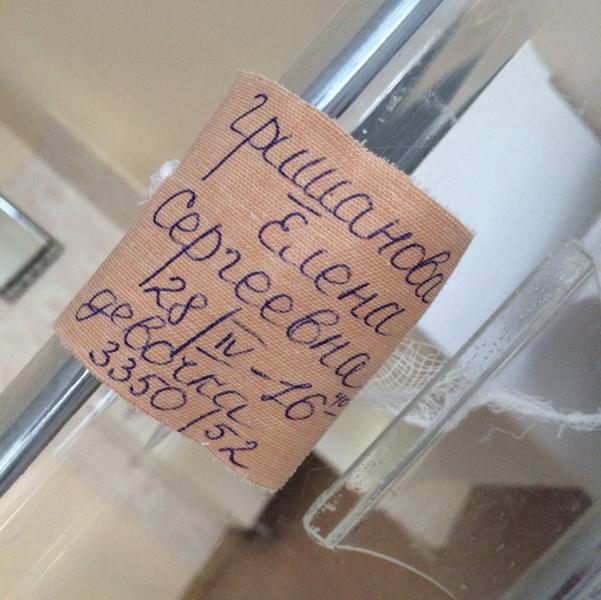 Гришанова
Елена
Сергеевна
28/IV - 16 40
девочка
3350/52